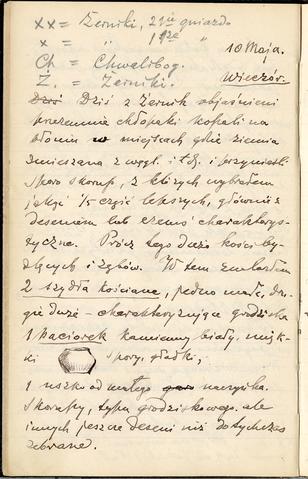 xx = Żerniki, 2gie gniazdo
x = " 1sze "
Ch = Chwalibog.
Ż. = Żerniki.
10 Maja.
Wieczór.
Dziś Dziś z Żernik objaśnieni
przezemnie chłopaki kopali na
w miejscach gdzie ziemia
zmieszana z węgl. i t.d. i przynieśli
sporo skorup, z których wybrałem
jakąś 1/5 część lepszych, głównie z
deseniem lub czemś charakterys-
tyczne. Prócz tego dużo kości by-
dlęcych i zębów. W tem znalazłem
2 szydła kościane, jedno małe, dru-
gie duże - charakteryzujące grodziska
1 paciorek kamienny biały, mięk-
ki spory, gładki;
1 uszko od małego naczyńka.
Skorupy, typu grodziskowego, ale
innych jeszcze deseni niż dotychczas
zebrane.